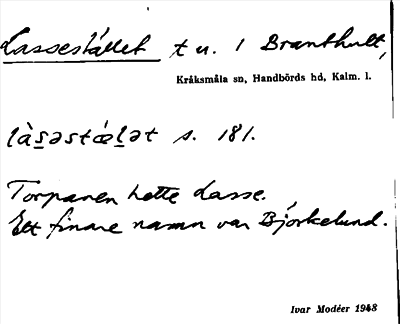 Lassestället t u. 1 Branthult,
Kråksmåla sn, Handbörds hd, Kalm. l.
làsəstǽlət s. 181.
Torparen hette Lasse.
Ett finare namn var Björkelund.
Ivar Modéer 1948